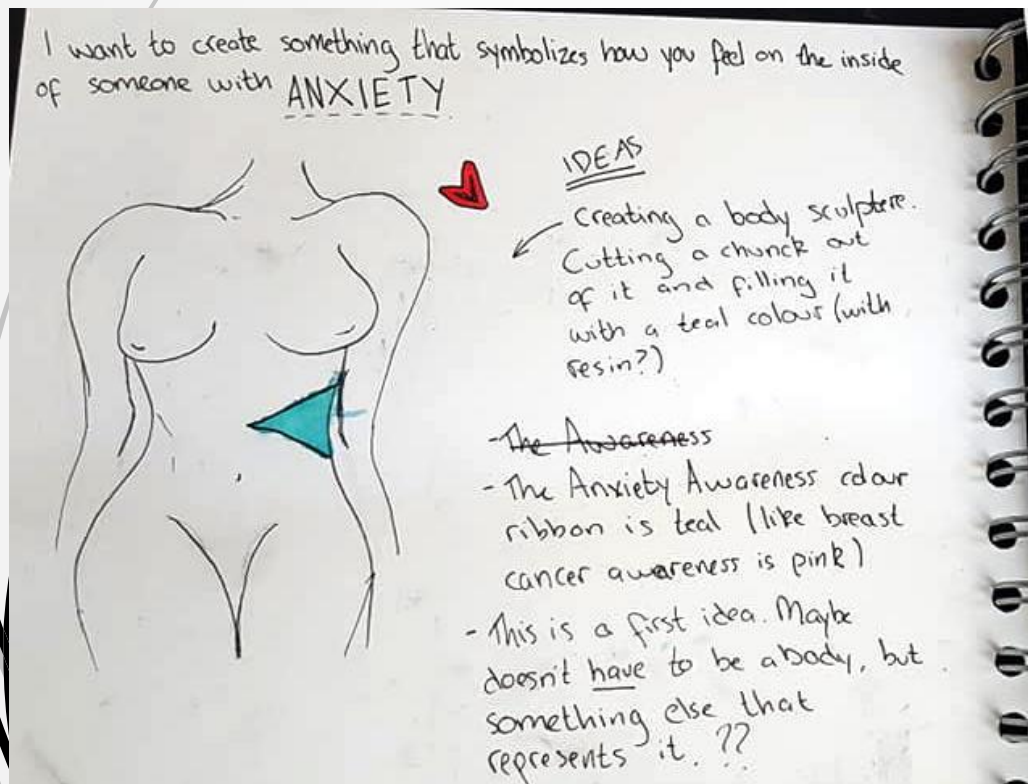 I want to create something that symbolizes how you feel on the inside
of someone with ANXIETY
IDEAS
Creating a body sculptere.
Cutting a chunck out
of it and filling it
with a teal colour (with
resin?)
- The Awareness
- The Anxiety Awareness colour
ribbon is teal (like breast
cancer awareness is pink)
- This is a first idea. Maybe
doesn't have to be a body, but
something else that
represents it. ??